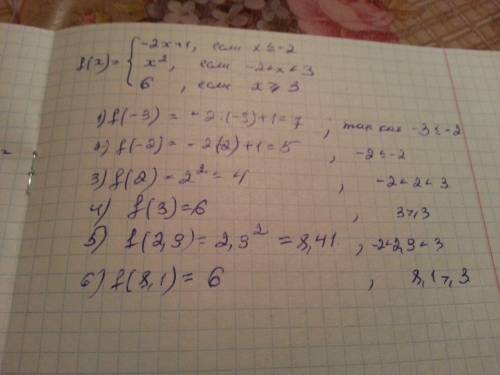 f(x)= { -2x+1, если x≤-2
x², если -2<x<3
6, если x⩾3
1) f(-3) = -2·(-3)+1=7, так как -3≤-2
2) f(-2)= -2(2)+1=5, -2≤-2
3) f(2)=2²=4, -2<2<3
4) f(3)=6, 3⩾3
5) f(2,9)=2,9²=8,41, -2<2,9<3
6) f(8,1)=6, 8,1⩾3